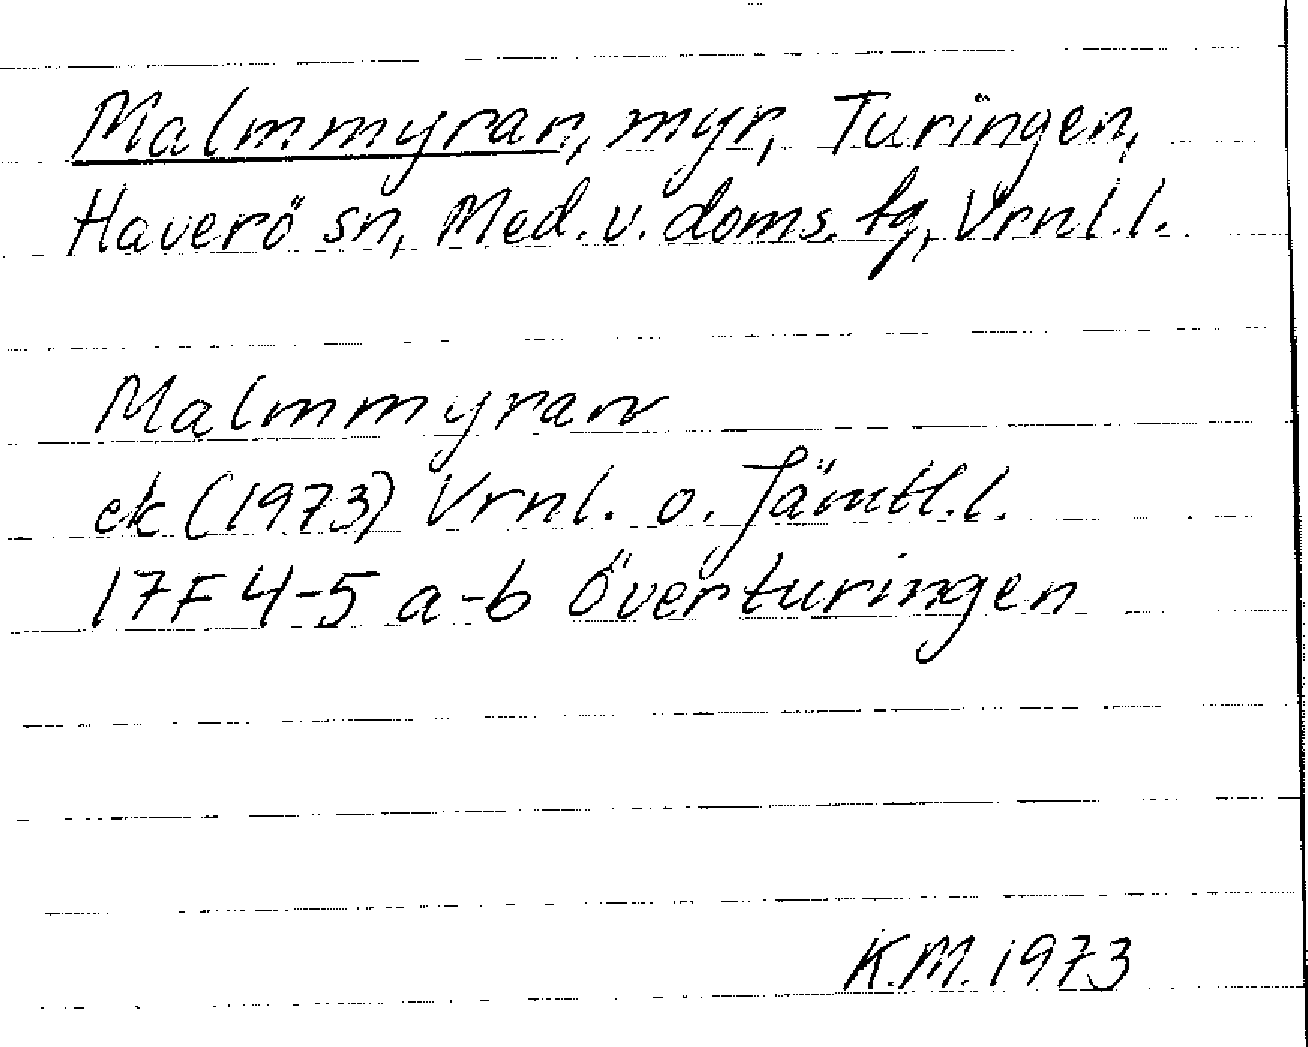 Malmmyran, myr, Turingen,
Haverö sn, Med. v. doms. tg, Vrnl.l.
Malmmyran
ek (1973) Vrnl. o. Jämtl.l.
17F 4-5 a-b Överturingen
K.M. 1973